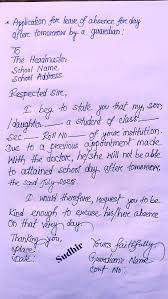 * Application for leave of absence for day
after tomorrow by a guardian:
To
The Headmaster
School Name
School Address
Respected Sir,
I beg to state you that my son
/daughter — a student of class!
Sec — Roll No — of your institution.
Due to a previous appointment made
with the doctor, he/she will not be able
to attained school day after tomorrow,
the 22nd July-2025.
I would therefore, request you to be
kind enough to excuse his/her absence
on that very day.
Thanking you,
Yours faithfully
Place:
Guardian's Name
Date:
Cont No.
Sudhir